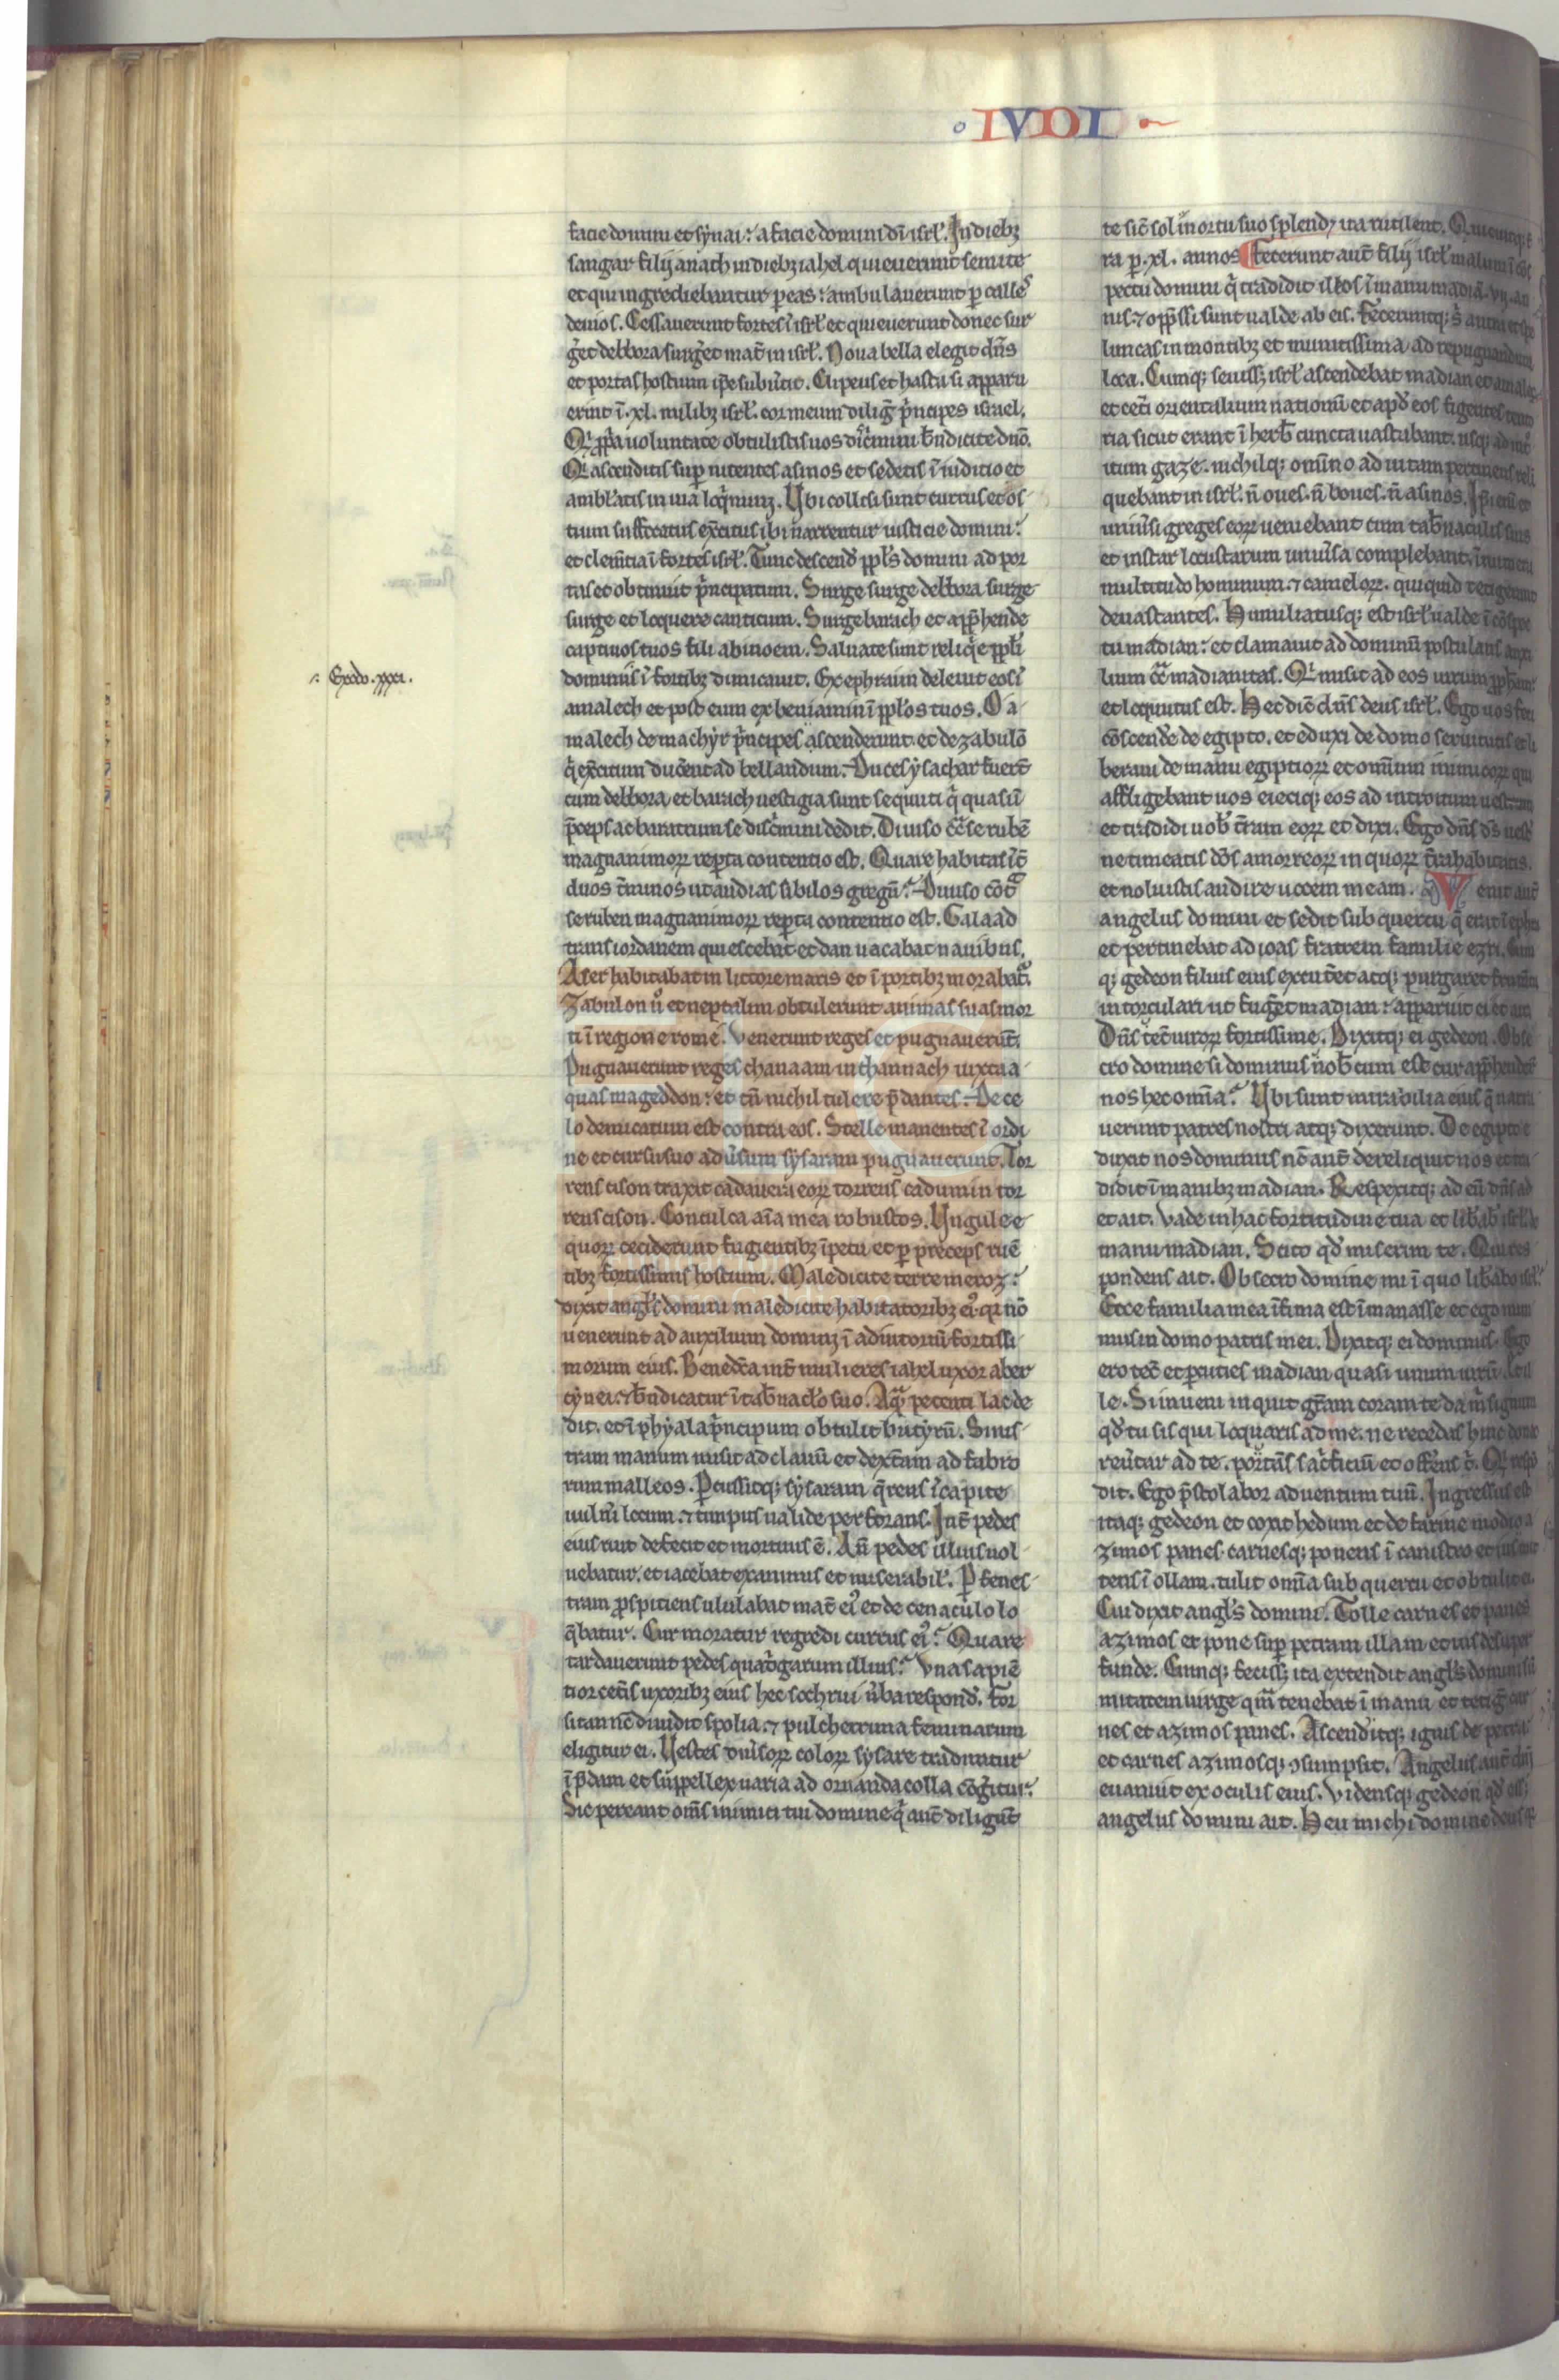 IVDI
facie domini et sẏnai : a facie domini dī isrł. In diebꝫ
sangar filij anach in diebꝫ iahel quieuerunt semite
et qui ingrediebantur ꝑ eas : ambulauerunt ꝑ calles
deuios. Cessauerunt fortes ī isrł et quieuerunt donec sur
g̃et delbora surg̃et mat̃ in isrł. Noua bella elegit dñs
et portas hostium ip̃e subũtit. Clipeus et hasta si apparu
erint ī .xl. milibꝫ isrł. cor meum dilig̃ p̃ncipes israel.
Qͥ ꝓp̃a uoluntate obtulistis uos disc̃mini bñdicite dño.
Qͥ ascenditis sup̱ nitentes asinos et sedetis ī iuditio et
ambłatis in uia loq̃minꝫ. Vbi collisi sunt currus et os
tium suffocatus ex̃citus ibi narrentur iusticie domini :
et clem̃tia ī fortes isrł. Tunc descend̃ ppłs domini ad por
tas et obtinuit p̃ncipatum. Surge surge delbora surge
surge et loquere canticum. Surge barach et app̃hende
captiuos tuos fili abinoem. Saluate sunt reliq̃e ppłi
dominus ī fortibꝫ dimicauit. Ex ephraim deleuit eos ī
.. Exodo .xxxi.
amalech et post eum ex beniamin ī ppłos tuos. O a
malech de machẏr p̃ncipes ascenderunt. et de zabulō
q̃ ex̃citum duc̃ent ad bellandum. Duces ẏsachar fuer̃t
cum delbora et barach uestigia sunt sequuti q̃ quasi ī
p̃ceps ac baratrum se disc̃mini dedit. Diuiso cō̃ se rubē
magnanimoꝝ rep̱ta contentio est. Quare habitas īt̃
duos t̃minos ut audias sibilos gregū. Diuiso cōt̃
se ruben magnanimoꝝ rep̱ta contentio est. Galaad
trans iordanem quiescebat et dan uacabat nauibus.
Aser habitabat in littore maris et ī portibꝫ morabat̃.
Zabulon ů et neptalim obtulerunt animas suas mor
ti ī regione rome. Venerunt reges et pugnauerūt.
Pugnauerunt reges chanaam in thannach iuxta a
quas mageddon : et tñ nichil tulere p̃dantes. De ce
lo demicatum est contra eos. Stelle manentes ī ordi
ne et cursu suo adũsum sẏsaram pugnauerunt. Tor
rens cison traxit cadauera eoꝝ torrens cadumin tor
rens cison. Conculca aīa mea robustos. Vngule e
quoꝝ ceciderunt fugientibꝫ īpetu et ꝑ preceps ruē
tibꝫ fortissimis hostium. Maledicite terre meroz :
dixit angłs domini maledicite habitatoribꝫ eiꝰ. qͥ nō
uenerunt ad auxilium dominꝫ ī adiutoriū fortissi
morum eius. Bened̃ca int̃ mulieres iahel uxor aber
cẏnei. ⁊ bñdicatur ī tab̃nacło suo. Aqͣ̃ petenti lac de
dit. et ī phẏala p̃ncipum obtulit butẏrū. Sinis
tram manum misit ad clauū et dext̃am ad fabro
rum malleos. Ꝑcussitqꝫ sẏsaram q̃rens ī capite
uulñi locum. ⁊ timpus ualide perforans. Int̃ pedes
eius ruit defecit et mortuus ē. An̄ pedes illius uol
uebatur. et iacebat exanimus et miserabił. Ꝑ fenes
tram ꝓspitiens ululabat mat̃ eiꝰ et de cenaculo lo
q̃batur. Cur moratur regredi currus eiꝰ. Quare
tardauerunt pedes quat̃garum illius. Vna sapiē
tior cet̃is uxoribꝫ eius hec sochrui ũba respond̃. For
sitan nc̄ diuidit spolia. ⁊ pulcherrima feminarum
eligitur ei. Vestes diũsoꝝ coloꝝ sẏsare traduntur
ī p̃dam et suppellex uaria ad ornanda colla cōg̃itur.
Sic pereant om̃s inimici tui domine q̃ aut̃ diligūt
te sic̃ sol in ortu suo splendꝫ ita rutilent. Quieuitqꝫ t̃
ra ꝑ .xl. annos. Fecerunt aut̃ filij isrł malum ī cōs
pectu domini q̃ tradidit illos ī manu madiā .vij. an
nis. ⁊ opp̃ssi sunt ualde ab eis. Feceruntqꝫ s̃ antra et spe
luncas in montibꝫ et munitissima ad repugnandum
loca. Cumqꝫ seuissꝫ isrł ascendebat madian et amalec
et cet̃i orientalium nationū et apd̃ eos figentes tento
ria sicut erant ī herb̃ cuncta uastabant. usqꝫ ad int̃
itum gaze. nichilqꝫ omnīo ad uitam pertinens reli
quebant in isrł. ñ oues. ñ boues. ñ asinos. Ip̃i eñi et
uniũsi greges eoꝝ ueniebant cum tab̃naculis suis
et instar locustarum uniũsa complebant. īnumera
multitudo hominum. ⁊ cameloꝝ. quiquid tetigerant
deuastantes. Humiliatusqꝫ est isrł ualde ī cōspec
tu madian : et clamauit ad dominū postulans auxi
lium cō̃ madianitas. Qͥ misit ad eos uirum ꝓph̃am :
et loquutus est. Hec dic̃ dñs deus isrł. Ego uos feci
cōscend̃e de egipto. et eduxi de domo seruitutis et li
beraui de manu egiptioꝝ et omnium inimicoꝝ qui
affligebant uos eieciqꝫ eos ad introitum uestrum
et tradidi uob̃ t̃ram eoꝝ et dixi. Ego dñs ds̃ uest̃
ne timeatis dos̃ amorreoꝝ in quoꝝ t̃ra habitatis.
et noluistis audire uocem meam. Venit aut̃
angelus domini et sedit sub quercu q̃ erat ī ephra
et pertinebat ad ioas fratrem familie ezri. Cum
qꝫ gedeon filius eius excut̃et atqꝫ purgaret frum̃ta
in torculari ut fug̃et madian : apparuit ei et ait
Dñs tec̃ uiroꝝ fortissime. Dixitqꝫ ei gedeon. Obse
cro domine si dominus nob̃cum est cur app̃hender̃t
nos hec omñia. Vbi sunt mirabilia eius q̃ narra
uerunt patres nostri atqꝫ dixerunt. De egipto e
duxit nos dominus nc̄ aut̃ dereliquit nos et tra
didit ī manibꝫ madian. Respexitqꝫ ad eū dñs ad
et ait. Vade in hac fortitudine tua et lib̃ab̃ isrł de
manu madian. Scito qd̃ miserim te. Qui res
pondens ait. Obsecro domine mi ī quo lib̃abo isrł.
Ecce familia mea īfima est ī manasse et ego mini
mus in domo patris mei. Dixitqꝫ ei dominus. Ego
ero tec̃ et ꝑcuties madian quasi unum uirū. Et il
le. Si inueni inquit gr̃am coram te da m̃ signum
qd̃ tu sis qui loquaris ad me. ne recedas hinc donec
reũtar ad te. portans sac̃ficiū et offerens t̃. Qͥ respō
dit. Ego p̃stolabor aduentum tuū. Ingressus est
itaqꝫ gedeon et coxit hedum et de farine modio a
zimos panes. carnesqꝫ ponens ī canistro et ius mit
tens ī ollam. tulit omñia sub quercu et obtulit ei.
Cui dixit angłs domini. Tolle carnes et panes
azimos et pone sup̱ petram illam et ius desuper
funde. Cumqꝫ fecissꝫ ita extendit angłs domini su
mitatem uirge qum̃ tenebat ī manu et tetig̃ car
nes et azimos panes. Ascend̃itqꝫ ignis de petra
et carnes azimosqꝫ ɔsumpsit. Angelus aut̃ dñi
euanuit ex oculis eius. Vidensqꝫ gedeon qd̃ ess̃
angelus domini ait. Heu michi domine deus qͥ